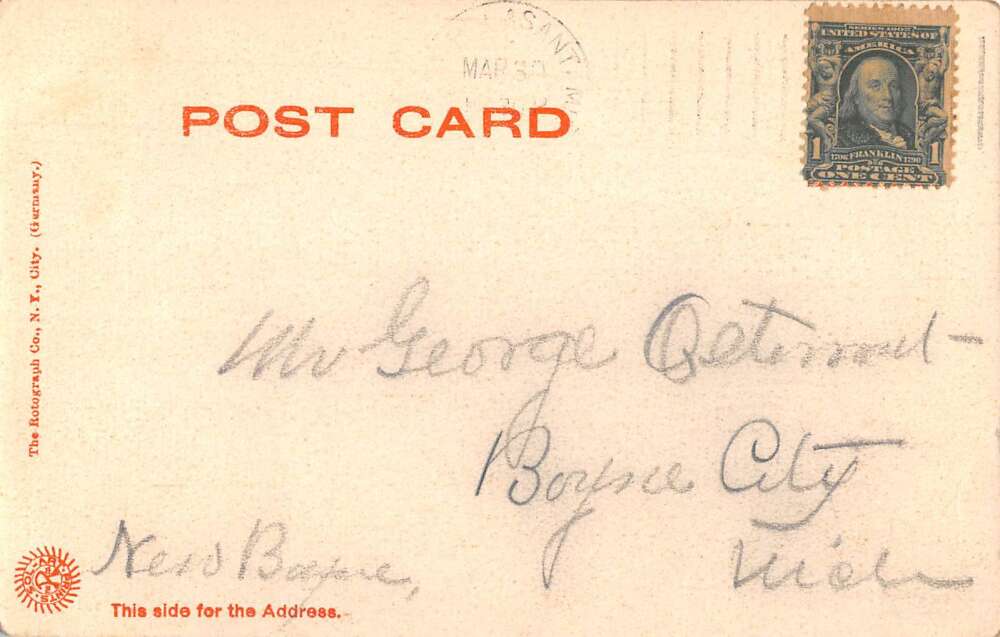 MAR 30
SERIES 1902
UNITED STATES OF
AMERICA
1 1706 FRANKLIN 1790 1
POSTAGE
ONE CENT
POST CARD
The Rotograph Co., N. Y., City. (Germany.)
Mr George
Boyne City
Mich
New Boyne,
This side for the Address.